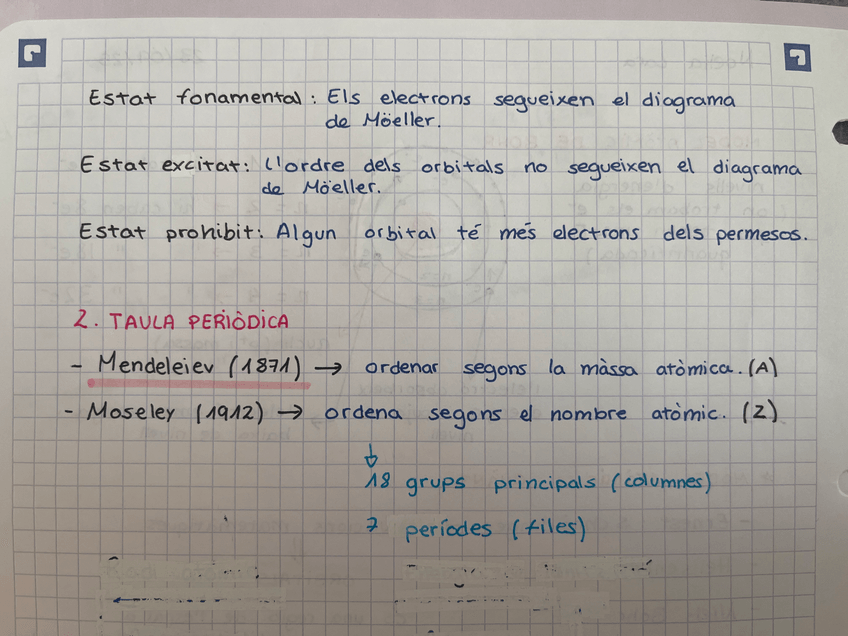 Estat fonamental: Els electrons segueixen el diagrama
de Möeller.
Estat excitat: L'ordre dels orbitals no segueixen el diagrama
de Möeller.
Estat prohibit: Algun orbital té més electrons dels permesos.
2. TAULA PERIÒDICA
- Mendeleiev (1871) → ordenar segons la màssa atòmica. (A)
- Moseley (1912) → ordena segons el nombre atòmic. (Z)
↓
18 grups principals (columnes)
7 períodes (files)